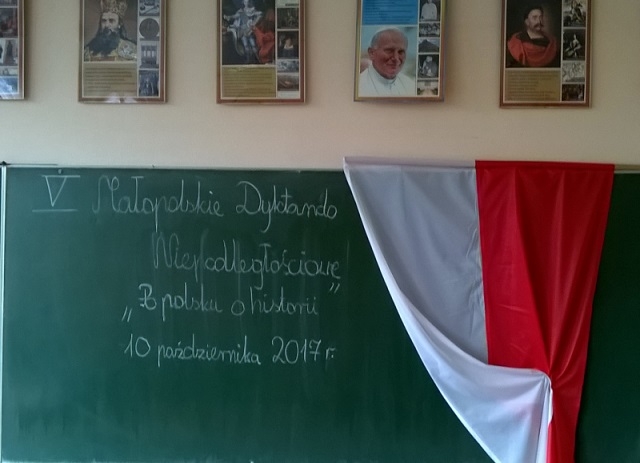 V Małopolskie Dyktando
Niepodległościowe
„Po polsku o historii”
10 października 2017 r.